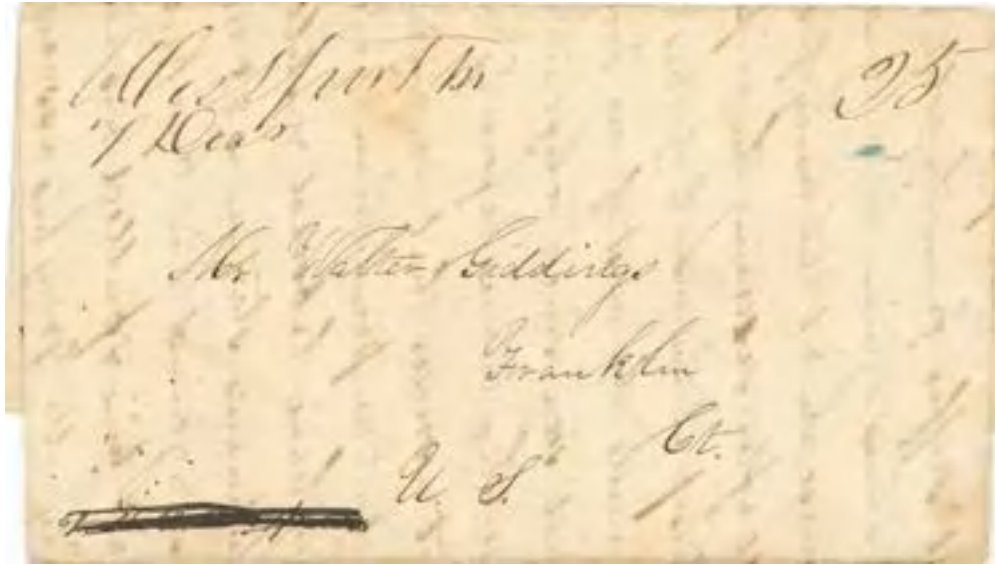 Westport 25
7 Decr
Mr Walter Giddings
Franklin
Ct.
U. S.